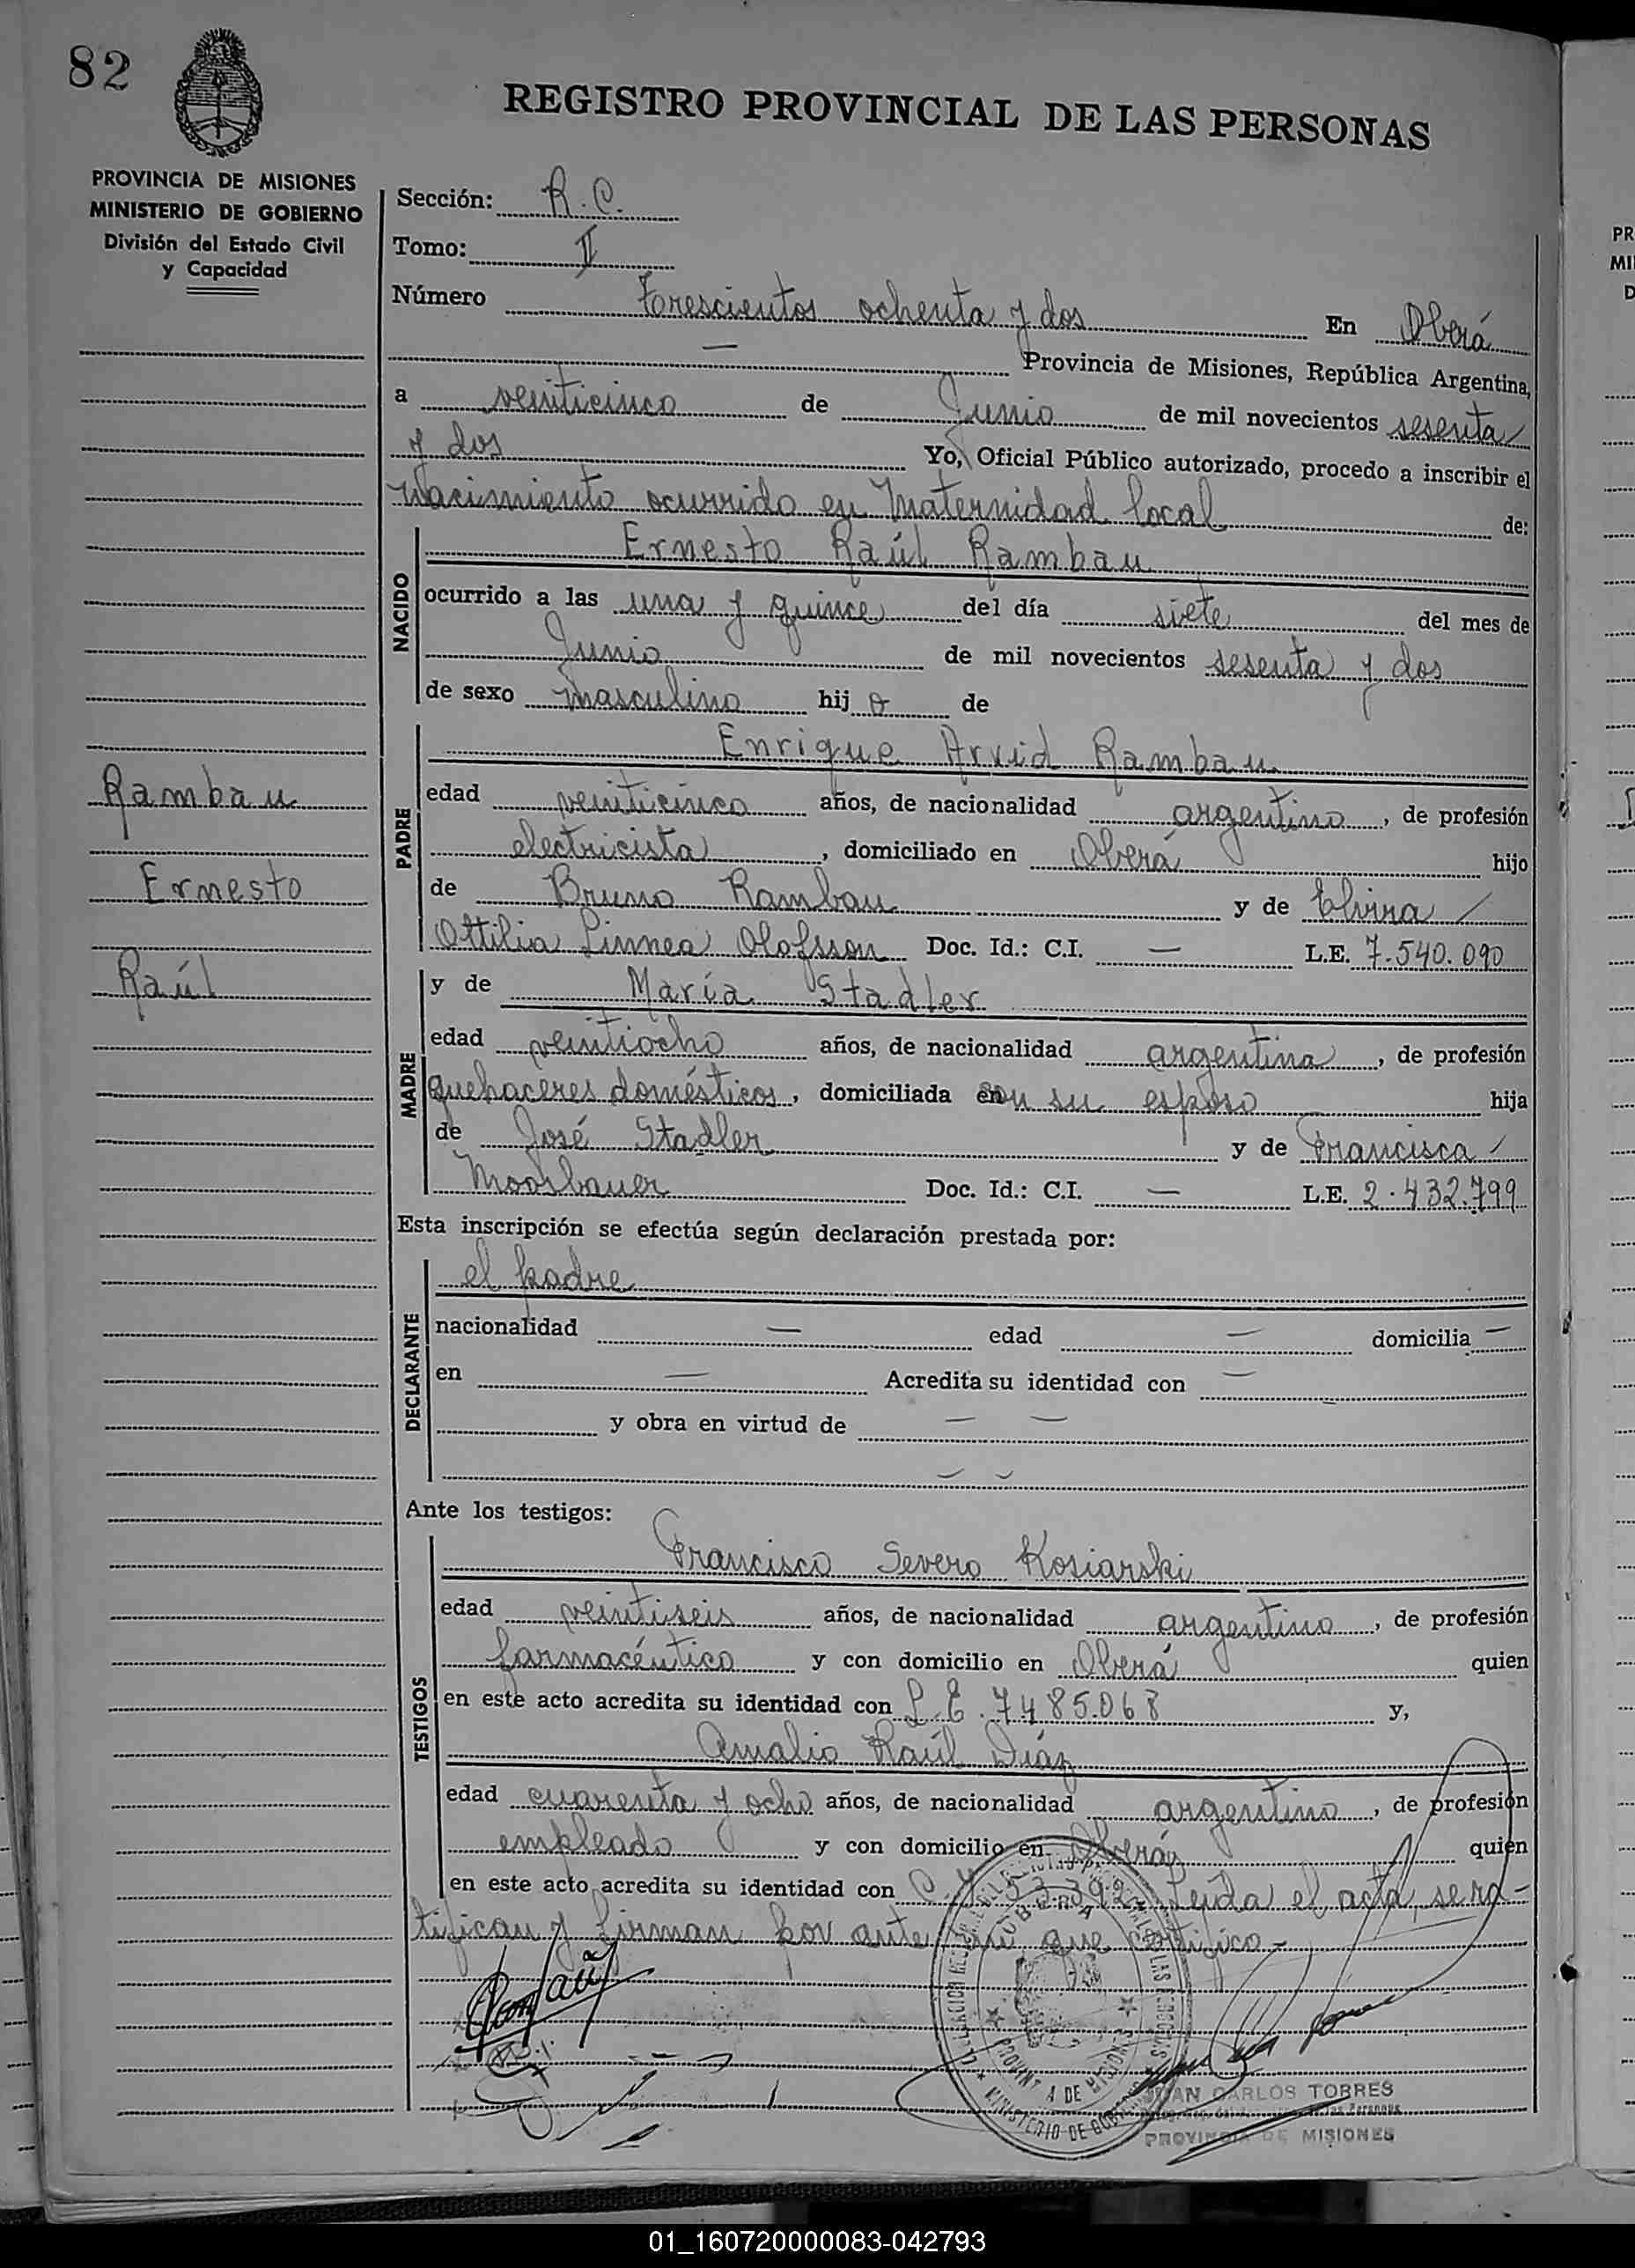 82
REGISTRO PROVINCIAL DE LAS PERSONAS
PROVINCIA DE MISIONES
MINISTERIO DE GOBIERNO
División del Estado Civil
y Capacidad
Sección: R. C.
Tomo: II
Número Trescientos ochenta y dos En Oberá
— Provincia de Misiones, República Argentina,
a veinticinco de Junio de mil novecientos sesenta
y dos Yo, Oficial Público autorizado, procedo a inscribir el
nacimiento ocurrido en Maternidad local de:
NACIDO
Ernesto Raúl Rambau
ocurrido a las una y quince del día siete del mes de
Junio de mil novecientos sesenta y dos
de sexo masculino hij o de
PADRE
Enrique Arvid Rambau
edad veinticinco años, de nacionalidad argentino, de profesión
electricista, domiciliado en Oberá hijo
de Bruno Rambau y de Elvira
Ottilia Linnea Olofsson Doc. Id.: C.I. — L.E. 7.540.090
Rambau
Ernesto
Raúl
MADRE
y de María Stadler
edad veintiocho años, de nacionalidad argentina, de profesión
quehaceres domésticos, domiciliada con su esposo hija
de José Stadler y de Francisca
Moosbauer Doc. Id.: C.I. — L.E. 2.432.799
Esta inscripción se efectúa según declaración prestada por:
DECLARANTE
el padre
nacionalidad — edad — domicilia —
en — Acredita su identidad con —
y obra en virtud de — —
Ante los testigos:
TESTIGOS
Francisco Severo Kosiarski
edad veintiseis años, de nacionalidad argentino, de profesión
farmacéutico y con domicilio en Oberá quien
en este acto acredita su identidad con L.E. 7485.068 y,
Amalio Raúl Díaz
edad cuarenta y ocho años, de nacionalidad argentino, de profesión
empleado y con domicilio en Oberá quien
en este acto acredita su identidad con Leída el acta, se ra-
tifican y firman por ante mí, que certifico.-
JUAN CARLOS TORRES
PROVINCIA DE MISIONES
01_160720000083-042793